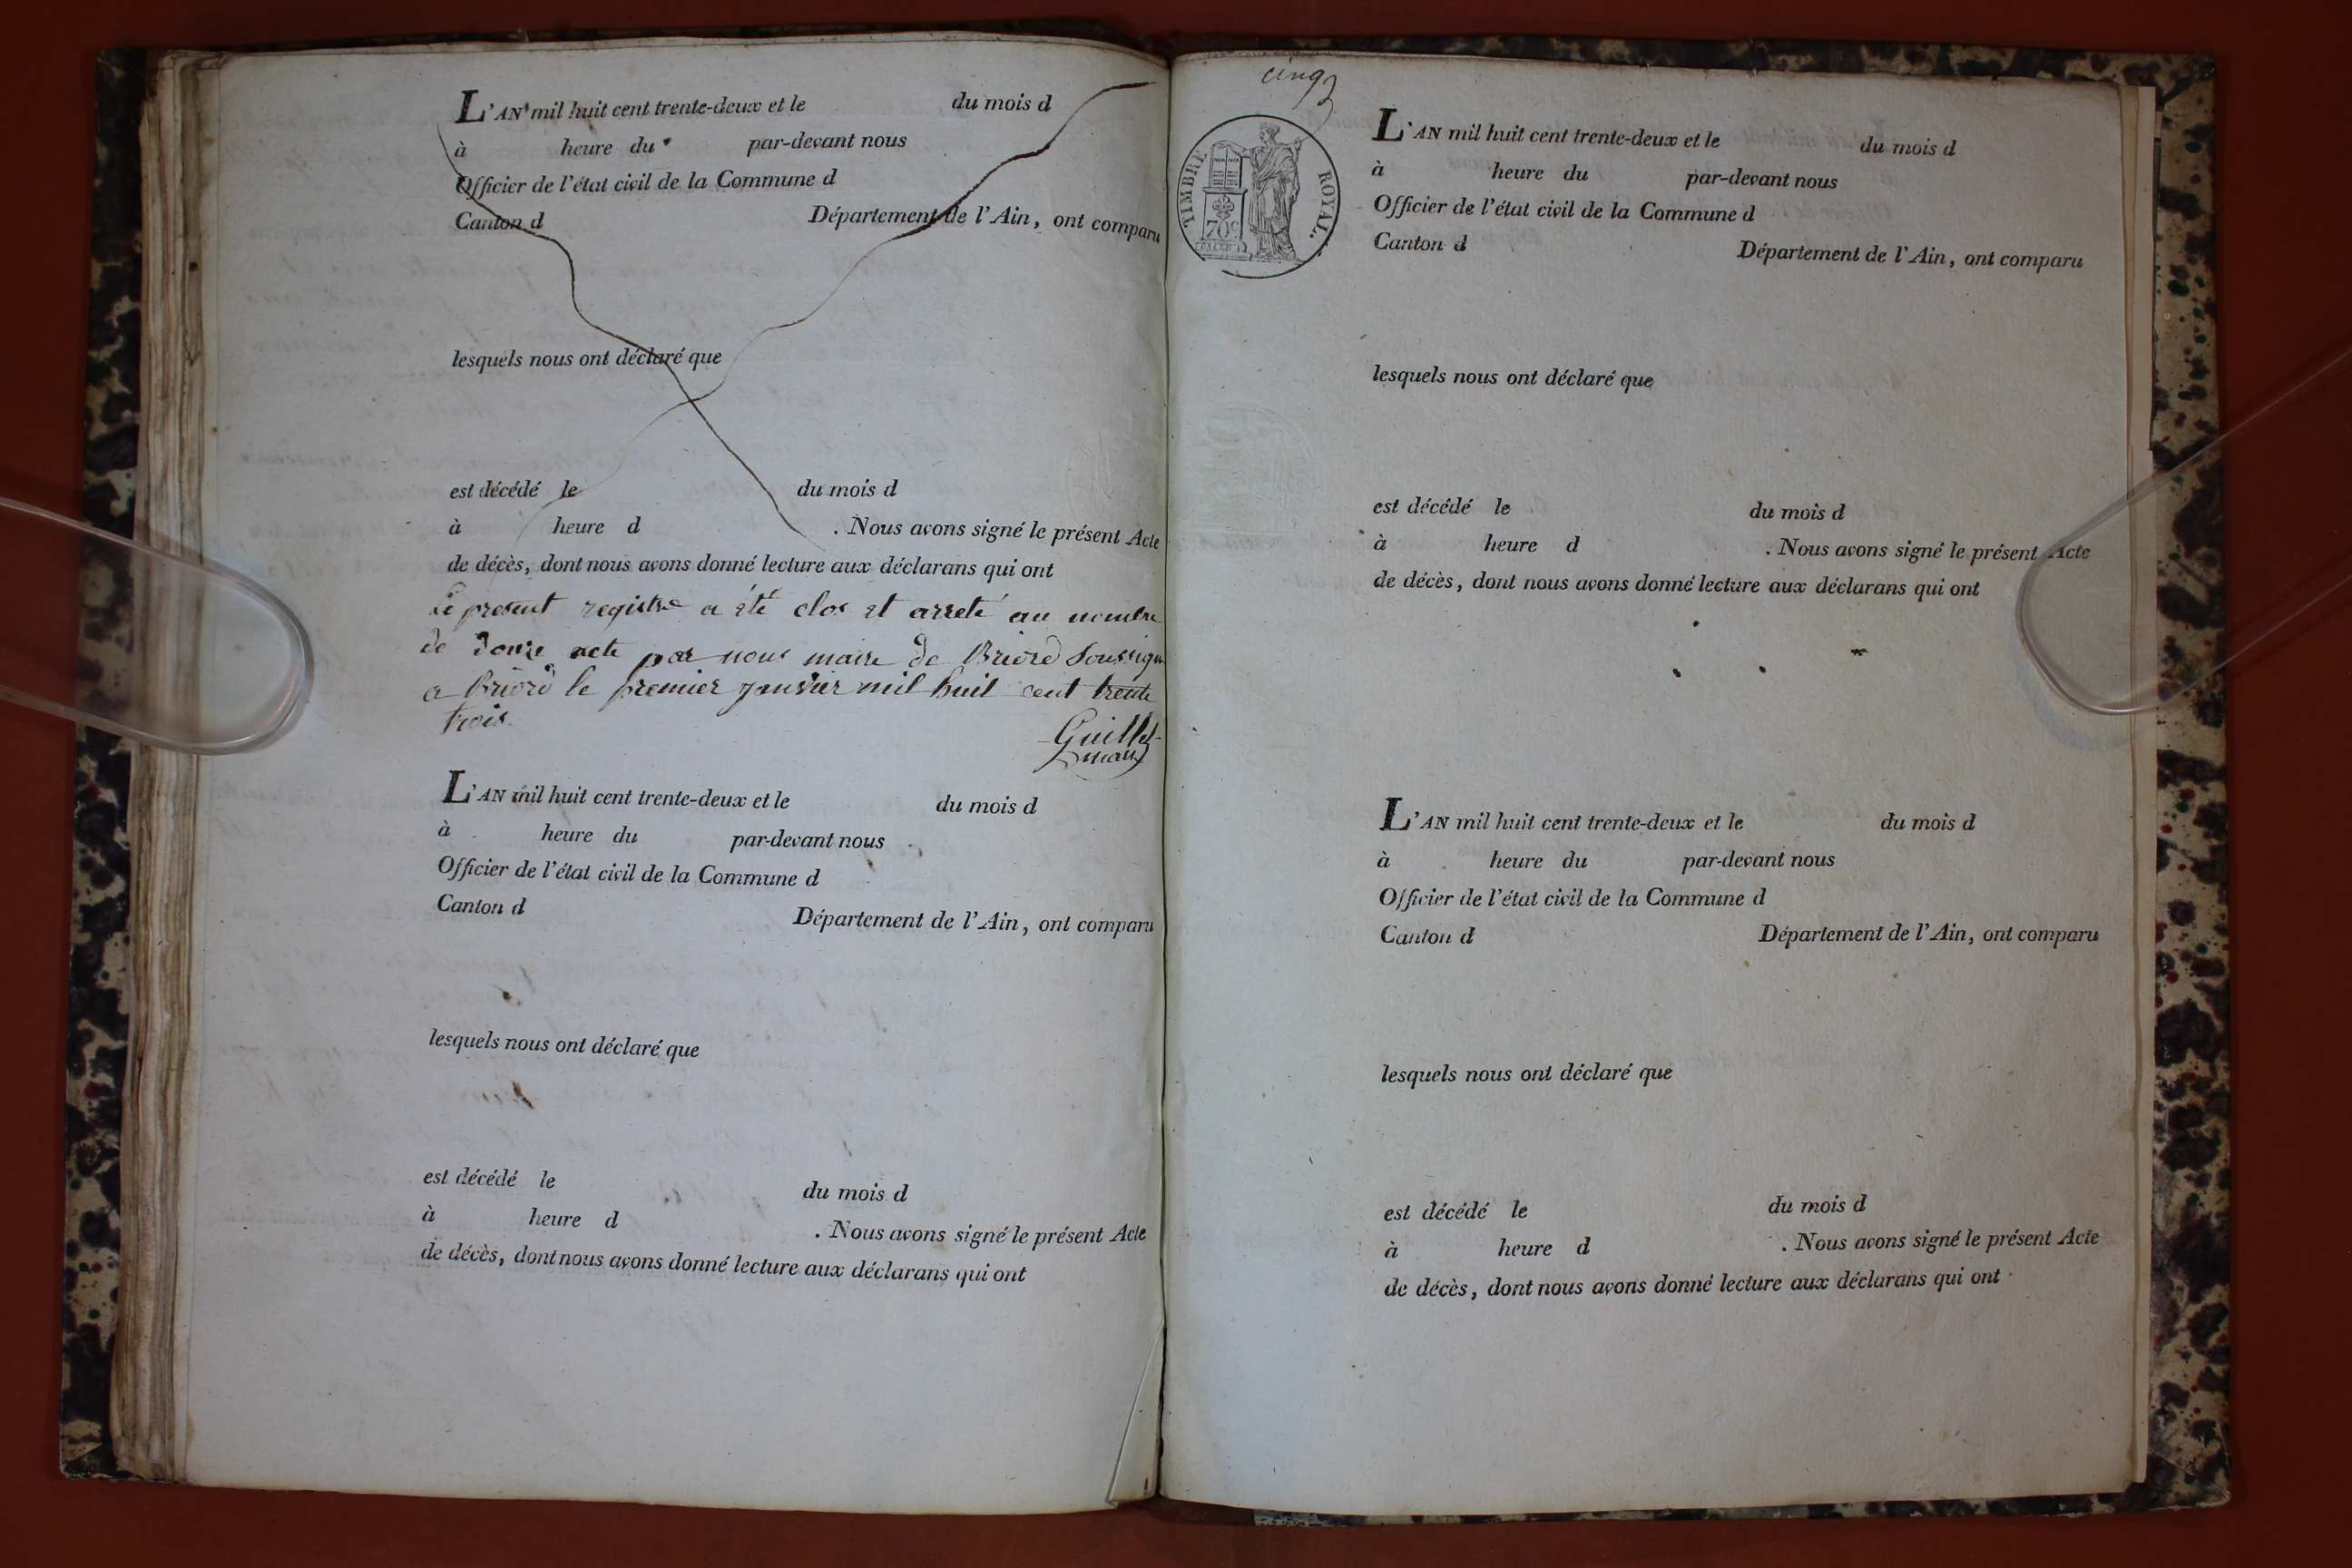 L'AN mil huit cent trente-deux et le du mois d
à heure du par-devant nous
Officier de l'état civil de la Commune d
Canton d Département de l'Ain, ont comparu
lesquels nous ont déclaré que
est décédé le du mois d
à heure d . Nous avons signé le présent Acte
de décès, dont nous avons donné lecture aux déclarans qui ont
Le present registre a été clos et arreté au nombre
de douze acte par nous maire de Briord Soussigné
a Briord le premier janvier mil huit cent trente
trois.
Guillet
maire
L'AN mil huit cent trente-deux et le du mois d
à heure du par-devant nous
Officier de l'état civil de la Commune d
Canton d Département de l'Ain, ont comparu
lesquels nous ont déclaré que
est décédé le du mois d
à heure d . Nous avons signé le présent Acte
de décès, dont nous avons donné lecture aux déclarans qui ont
cinq
TIMBRE ROYAL.
70c
L'AN mil huit cent trente-deux et le du mois d
à heure du par-devant nous
Officier de l'état civil de la Commune d
Canton d Département de l'Ain, ont comparu
lesquels nous ont déclaré que
est décédé le du mois d
à heure d . Nous avons signé le présent Acte
de décès, dont nous avons donné lecture aux déclarans qui ont
L'AN mil huit cent trente-deux et le du mois d
à heure du par-devant nous
Officier de l'état civil de la Commune d
Canton d Département de l'Ain, ont comparu
lesquels nous ont déclaré que
est décédé le du mois d
à heure d . Nous avons signé le présent Acte
de décès, dont nous avons donné lecture aux déclarans qui ont